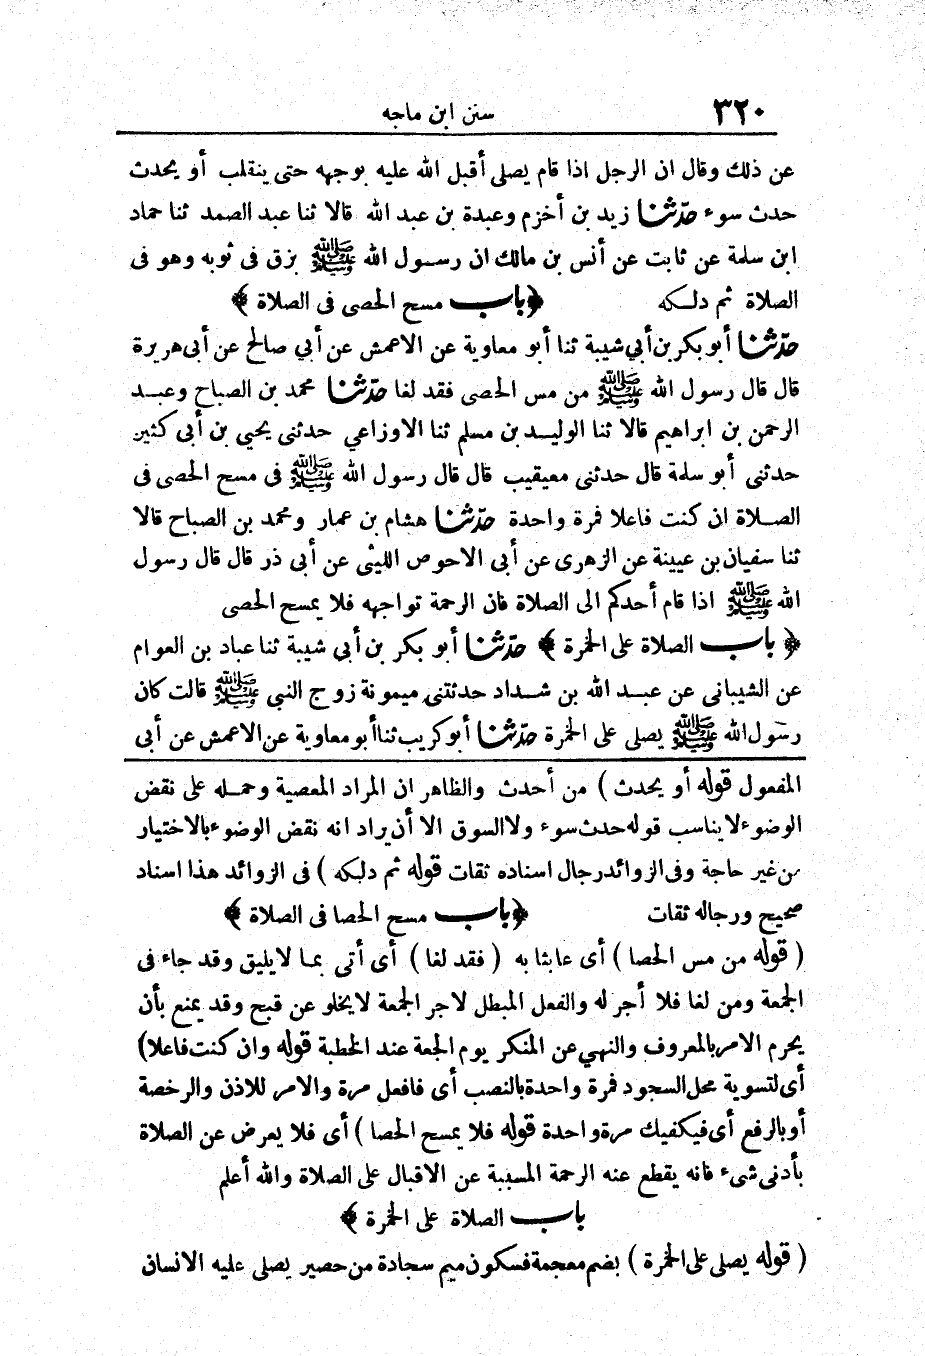 ٣٢٠ سنن ابن ماجه
عن ذلك وقال ان الرجل اذا قام يصلى أقبل الله عليه بوجهه حتى ينقلب أو يحدث
حدث سوء حدّثنا زيد بن أخزم وعبدة بن عبد الله قالا ثنا عبد الصمد ثنا حماد
ابن سلمة عن ثابت عن أنس بن مالك ان رسول الله ﷺ بزق فى ثوبه وهو فى
الصلاة ثم دلكه ﴿باب مسح الحصى فى الصلاة﴾
حدّثنا أبو بكر بن أبي شيبة ثنا أبو معاوية عن الاعمش عن أبي صالح عن أبى هريرة
قال قال رسول الله ﷺ من مس الحصى فقد لغا حدّثنا محمد بن الصباح وعبد
الرحمن بن ابراهيم قالا ثنا الوليد بن مسلم ثنا الاوزاعي حدثنى يحيى بن أبى كثير
حدثنى أبو سلمة قال حدثنى معيقيب قال قال رسول الله ﷺ فى مسح الحصى فى
الصلاة ان كنت فاعلا فمرة واحدة حدّثنا هشام بن عمار ومحمد بن الصباح قالا
ثنا سفيان بن عيينة عن الزهرى عن أبى الاحوص الليثى عن أبى ذر قال قال رسول
الله ﷺ اذا قام أحدكم الى الصلاة فان الرحمة تواجهه فلا يمسح الحصى
﴿باب الصلاة على الخمرة﴾ حدّثنا أبو بكر بن أبي شيبة ثنا عباد بن العوام
عن الشيبانى عن عبد الله بن شداد حدثتنى ميمونة زوج النبي ﷺ قالت كان
رسول الله ﷺ يصلى على الخمرة حدّثنا أبو كريب ثنا أبو معاوية عن الاعمش عن أبى
المفعول قوله أو يحدث ) من أحدث والظاهر ان المراد المعصية وحمله على نقض
الوضوء لا يناسب قوله حدث سوء ولا السوق الا أن يراد انه نقض الوضوء بالاختيار
من غير حاجة وفى الزوائد رجال اسناده ثقات قوله ثم دلكه ) فى الزوائد هذا اسناد
صحيح ورجاله ثقات ﴿باب مسح الحصا فى الصلاة﴾
( قوله من مس الحصا ) أى عابثا به ( فقد لغا ) أى أتى بما لا يليق وقد جاء فى
الجمعة ومن لغا فلا أجر له والفعل المبطل لاجر الجمعة لا يخلو عن قبح وقد يمنع بأن
يحرم الامر بالمعروف والنهي عن المنكر يوم الجمعة عند الخطبة قوله وان كنت فاعلا)
أى لتسوية محل السجود فمرة واحدة بالنصب أى فافعل مرة والامر للاذن والرخصة
أو بالرفع أى فيكفيك مرة واحدة قوله فلا يمسح الحصا ) أى فلا يعرض عن الصلاة
بأدنى شىء فانه يقطع عنه الرحمة المسببة عن الاقبال على الصلاة والله أعلم
باب الصلاة على الخمرة ﴾
( قوله يصلى على الخمرة ) بضم معجمة فسكون ميم سجادة من حصير يصلى عليه الانسان